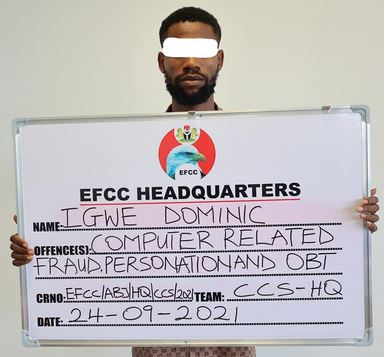 EFCC
EFCC HEADQUARTERS
NAME: IGWE DOMINIC
OFFENCE(S): COMPUTER RELATED
FRAUD, PERSONATION AND OBT
CRNO: EFCC/ABJ/HQ/CCS/2021 TEAM: CCS-HQ
DATE: 24-09-2021